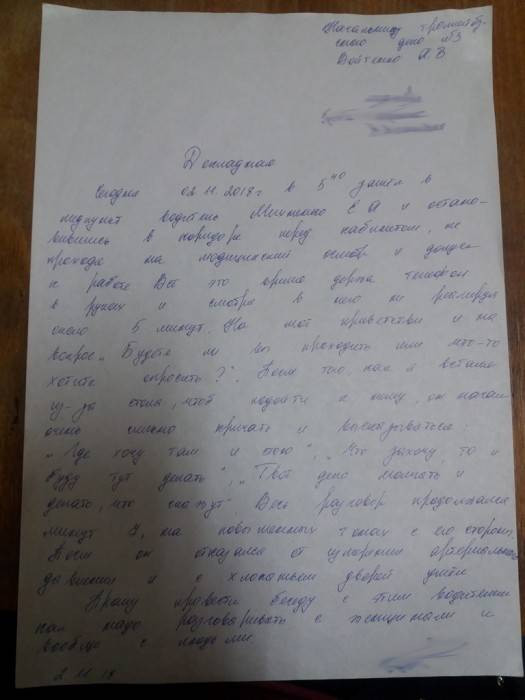 Начальнику троллейбу-
сного депо №3
Войтенко А.В
Докладная
Сегодня 02.11.2018г в 5 40 зашел в
медпункт водитель Михненко Е А и остано-
вившись в коридоре перед кабинетом, не
проходя на медицинский осмотр и допуск
к работе Все это время держа телефон
в руках и смотря в него не реагируя
около 5 минут. На моё приветствие и на
вопрос „Будете ли вы проходить или что-то
хотите спросить?". После того, как я встала
из-за стола, чтоб подойти к нему, он начал
очень сильно кричать и высказываться:
„Где хочу там и стою", „Что захочу, то и
буду тут делать", „Твоё дело молчать и
делать, что скажут". Весь разговор продолжался
минут 7, на повышенных тонах с его стороны.
После он отказался от измерения артериального
давления и с хлопаньем дверей ушёл
Прошу провести беседу с этим водителем
как надо разговаривать с женщинами и
вообще с людьми.
2 11 18